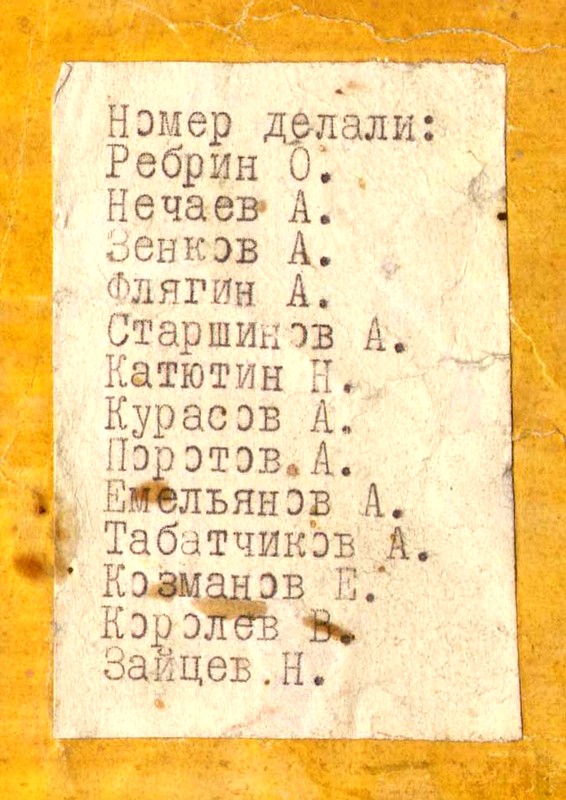 Номер делали:
Ребрин О.
Нечаев А.
Зенков А.
Флягин А.
Старшинов А.
Катютин Н.
Курасов А.
Поротов А.
Емельянов А.
Табатчиков А.
Козманов Е.
Королев В.
Зайцев Н.